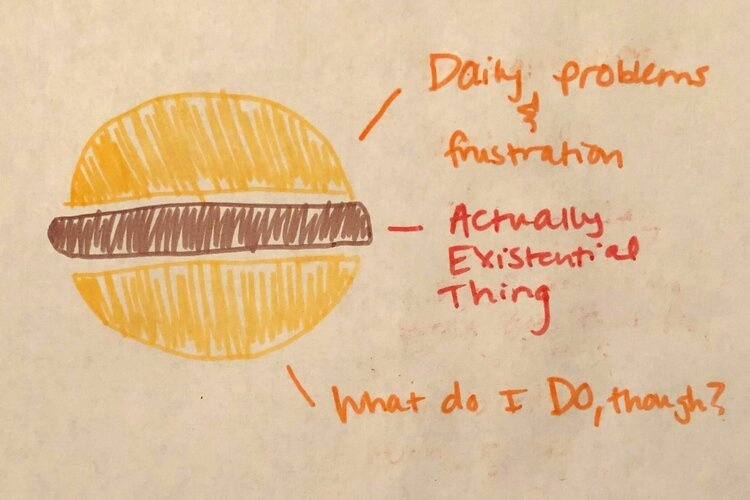 Daily problems
&
frustration
Actually
Existential
Thing
What do I DO, though?